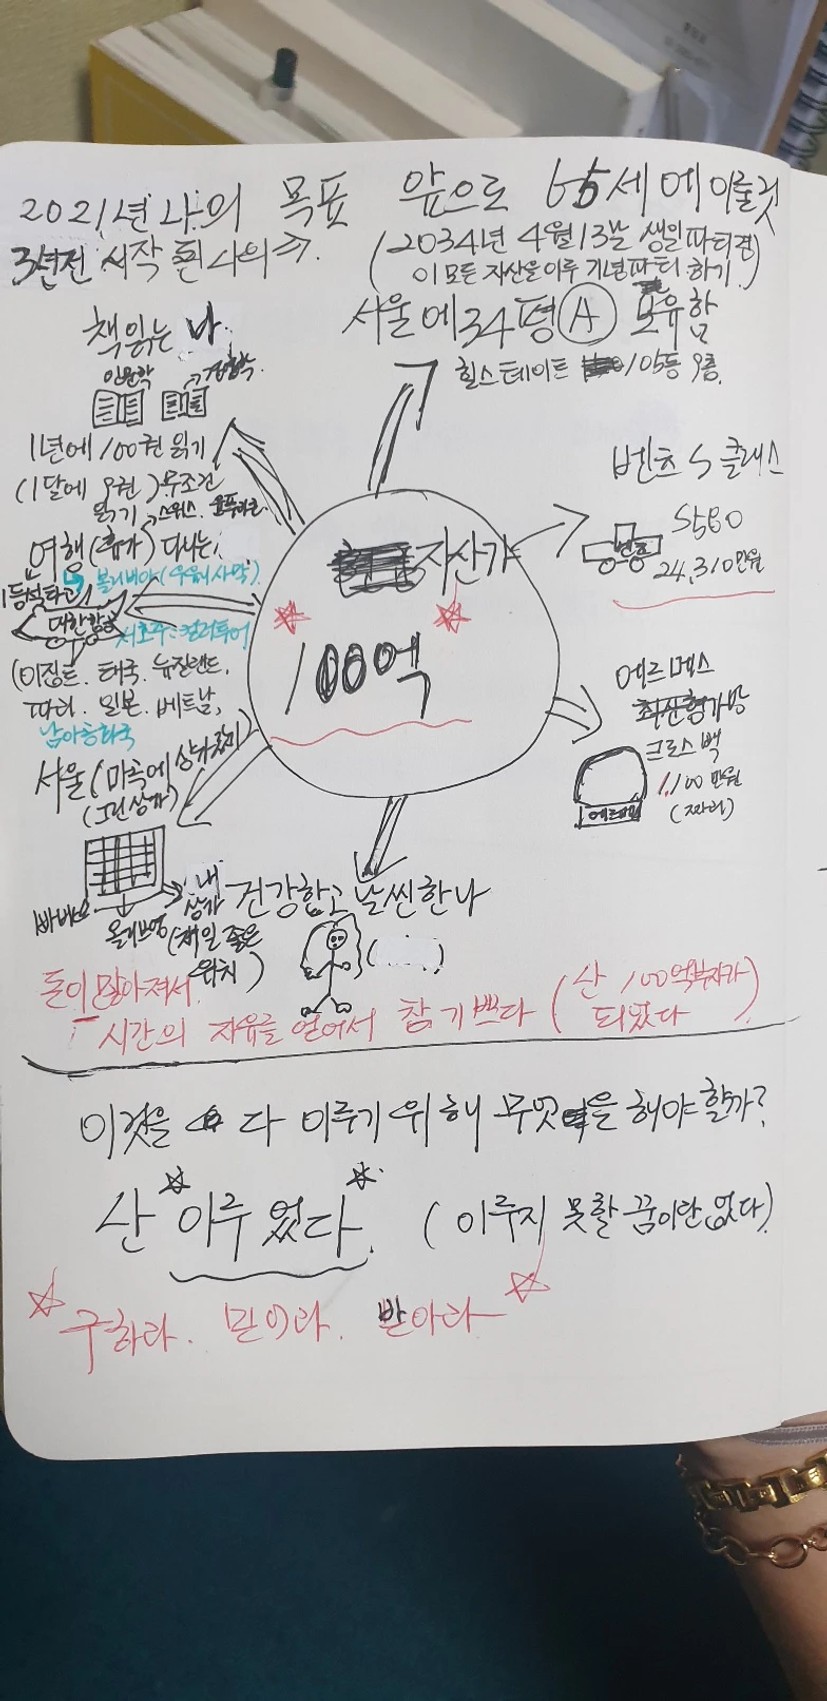 2021년 나의 목표 앞으로 65세에 이룰것
3년전 시작 된 나의 →
(2034년 4월 13일 생일파티겸
이 모든 자산을 이루 기념파티 하기.)
서울에 34평 Ⓐ 보유함
힐스테이트 105동 9층.
책읽는 나.
인문학
경제학.
1년에 100권 읽기
(1달에 9권) 무조건
읽기
스위스.
여행(휴가) 다니는,
볼리비아(우유니사막)
1등석타고
대한항공
(이집트. 태국. 뉴질랜드.
파리. 일본. 베트남,
남아공화국
자산가
100억
벤츠 S 클래스
S580
벤츠
24,310만원
에르메스
최신형가방
크로스 백
1,100만원
(짜리)
에르메스
서울(마곡에 상가
(그린상가)
빠바
올리브영
내
상가
(제일 좋은
위치)
건강하고 날씬한나
돈이 많아져서.
시간의 자유를 얻어서 참 기쁘다 (난 100억부자가
되었다)
이것을 다 이루기 위해 무엇을 해야 할까?
난 이루었다. (이루지 못할 꿈이란 없다)
구하라. 믿으라. 받아라